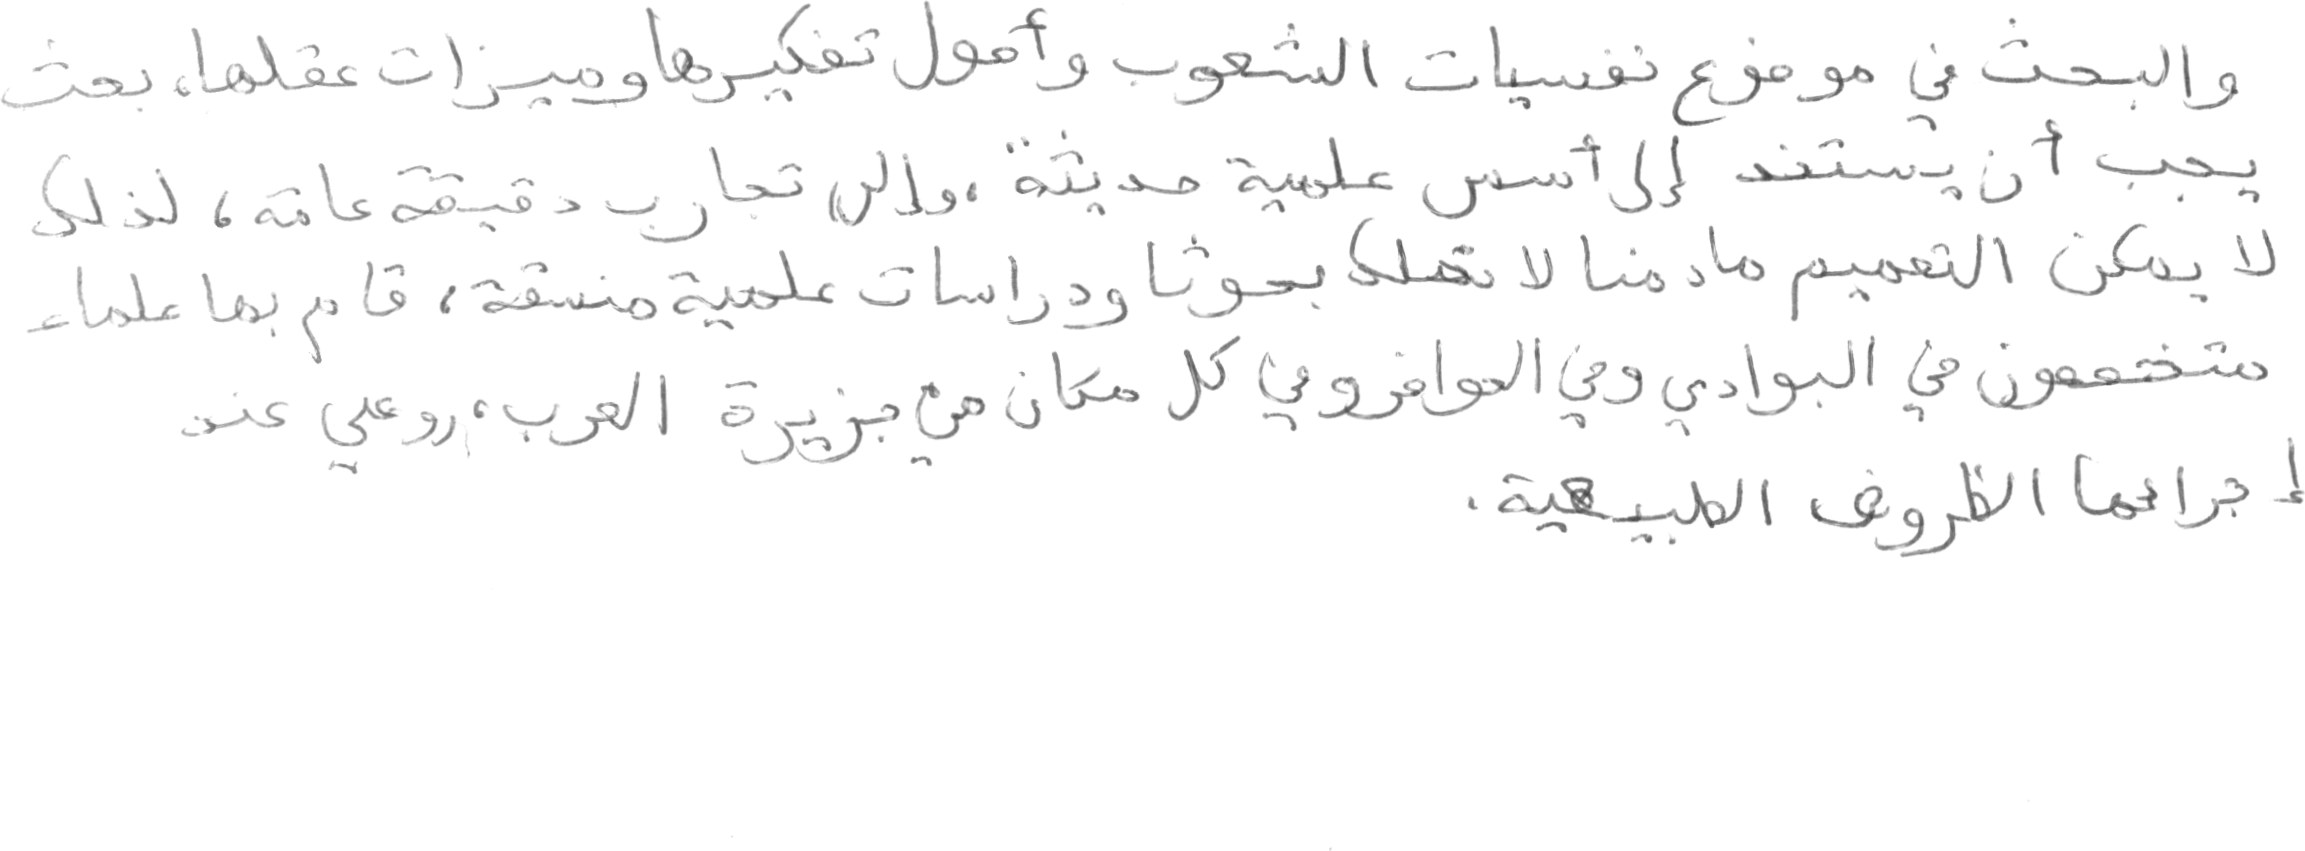 والبحث في موضوع نفسيات الشعوب وأصول تفكيرها وميزات عقلها، بحث
يجب أن يستند إلى أسس علمية حديثة، وإلى تجارب دقيقة عامة، لذلك
لا يمكن التعميم مادمنا لا نملك بحوثا ودراسات علمية منسقة، قام بها علماء
متخصصون في البوادي وفي الحواضر وفي كل مكان من جزيرة العرب، روعي عند
إجرائها الظروف الطبيعية.